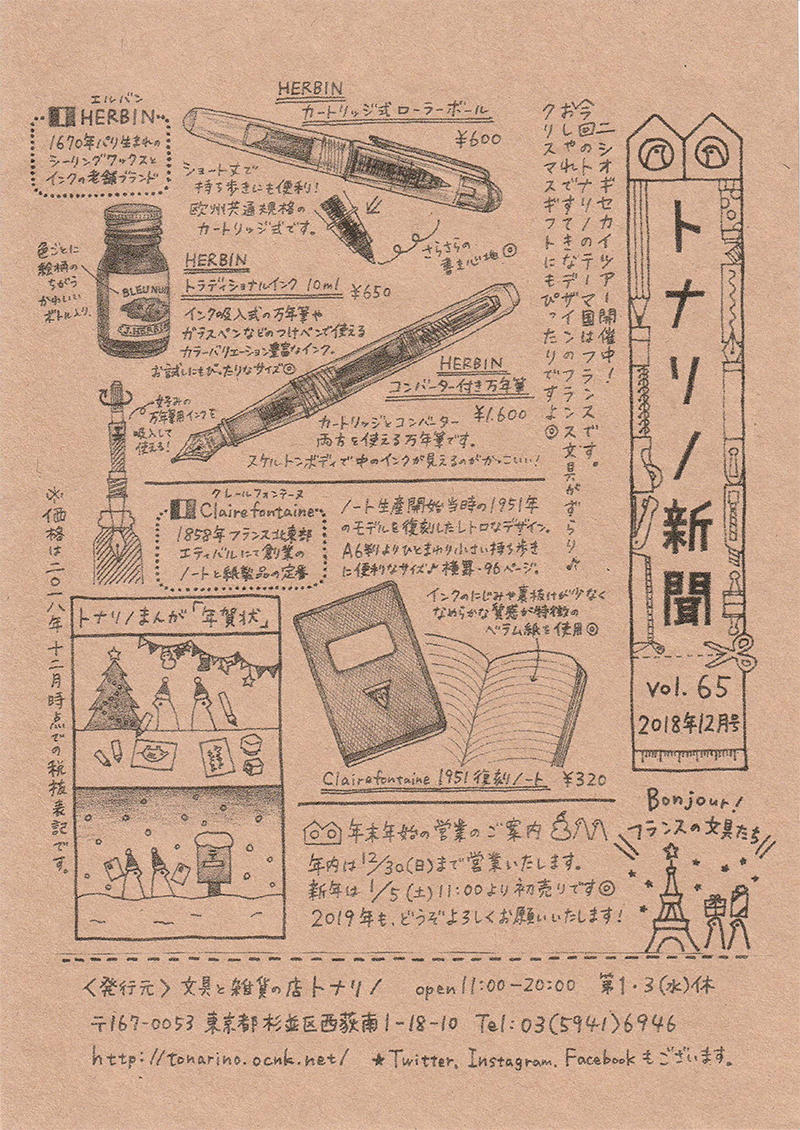 トナリノ新聞
vol. 65
2018年12月号
ニシオギセカイツアー開催中！
今回のトナリノのテーマ国はフランスです。
おしゃれですてきなデザインのフランス文具がずらり♪
クリスマスギフトにもぴったりですよ◎
エルバン
HERBIN
1670年パリ生まれの
シーリングワックスと
インクの老舗ブランド
HERBIN
カートリッジ式ローラーボール
¥600
ショート丈で
持ち歩きにも便利！
欧州共通規格の
カートリッジ式です。
さらさらの
書き心地◎
色ごとに
絵柄の
ちがう
かわいい
ボトル入り。
BLEU NUIT
J. HERBIN
HERBIN
トラディショナルインク 10ml ¥650
インク吸入式の万年筆や
ガラスペンなどのつけペンで使える
カラーバリエーション豊富なインク。
お試しにもぴったりなサイズ◎
HERBIN
コンバーター付き万年筆
¥1.600
カートリッジとコンバーター
両方を使える万年筆です。
スケルトンボディで中のインクが見えるのがかっこいい！
お好みの
万年筆用インクを
吸入して
使える！
クレールフォンテーヌ
Clairefontaine
1858年フランス北東部
エティバルにて創業の
ノートと紙製品の定番
ノート生産開始当時の1951年
のモデルを復刻したレトロなデザイン。
A6判よりひとまわり小さい持ち歩き
に便利なサイズ♪ 横罫・96ページ。
インクのにじみや裏抜けが少なく
なめらかな質感が特徴の
ベラム紙を使用◎
Clairefontaine 1951復刻ノート ¥320
※価格は二〇一八年十二月時点での税抜表記です。
トナリノまんが「年賀状」
年末年始の営業のご案内
年内は12/30(日)まで営業いたします。
新年は1/5(土)11:00より初売りです◎
2019年も、どうぞよろしくお願いいたします！
Bonjour!
フランスの文具たち
〈発行元〉文具と雑貨の店トナリノ open 11:00-20:00 第1・3(水)休
〒167-0053 東京都杉並区西荻南1-18-10 Tel:03(5941)6946
http://tonarino.ocnk.net/ ★Twitter, Instagram, Facebookもございます。